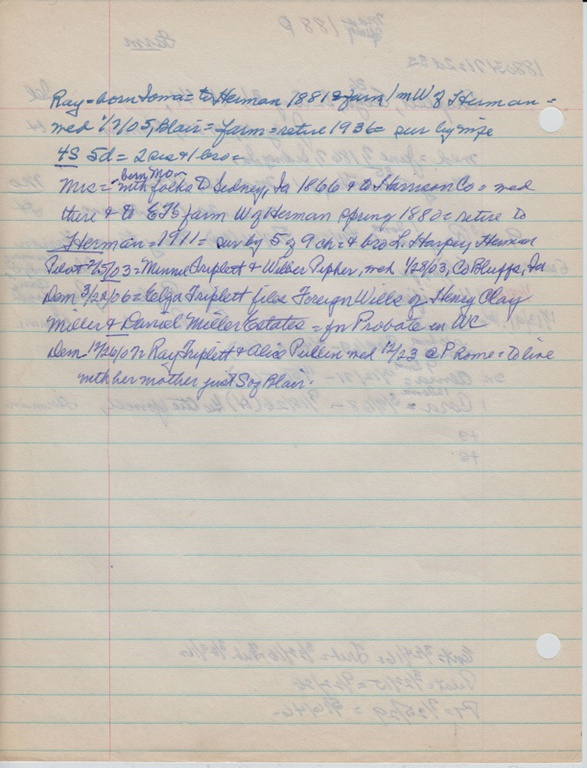 Ray = born Iowa = to Herman 1881 = farm 1 m W of Herman =
wed 1/2/05, Blair = farm = retire 1936 = sur by wife
4S 5d = 2 sis & 1 bro =
Mrs = born Mo - with folks to Sidney, Ia 1866 & to Harrison Co = wed
there & to farm W of Herman spring 1880 = retire to
Herman = 1911 = sur by 5 of 9 ch = & bro L. Harpey, Herman
Pilot 2/5/03 = Minnie Triplett & Wilber Pepher, wed 1/28/03, Co Bluffs, Ia
Dem 3/22/06 = Elga Triplett files Foreign Wills of Henry Clay
Miller & Daniel Miller Estates = for Probate in WC
Dem 12/26/07 = Ray Triplett & Alice Pullen wed 12/23 @ P home = to live
with her mother just So of Blair.